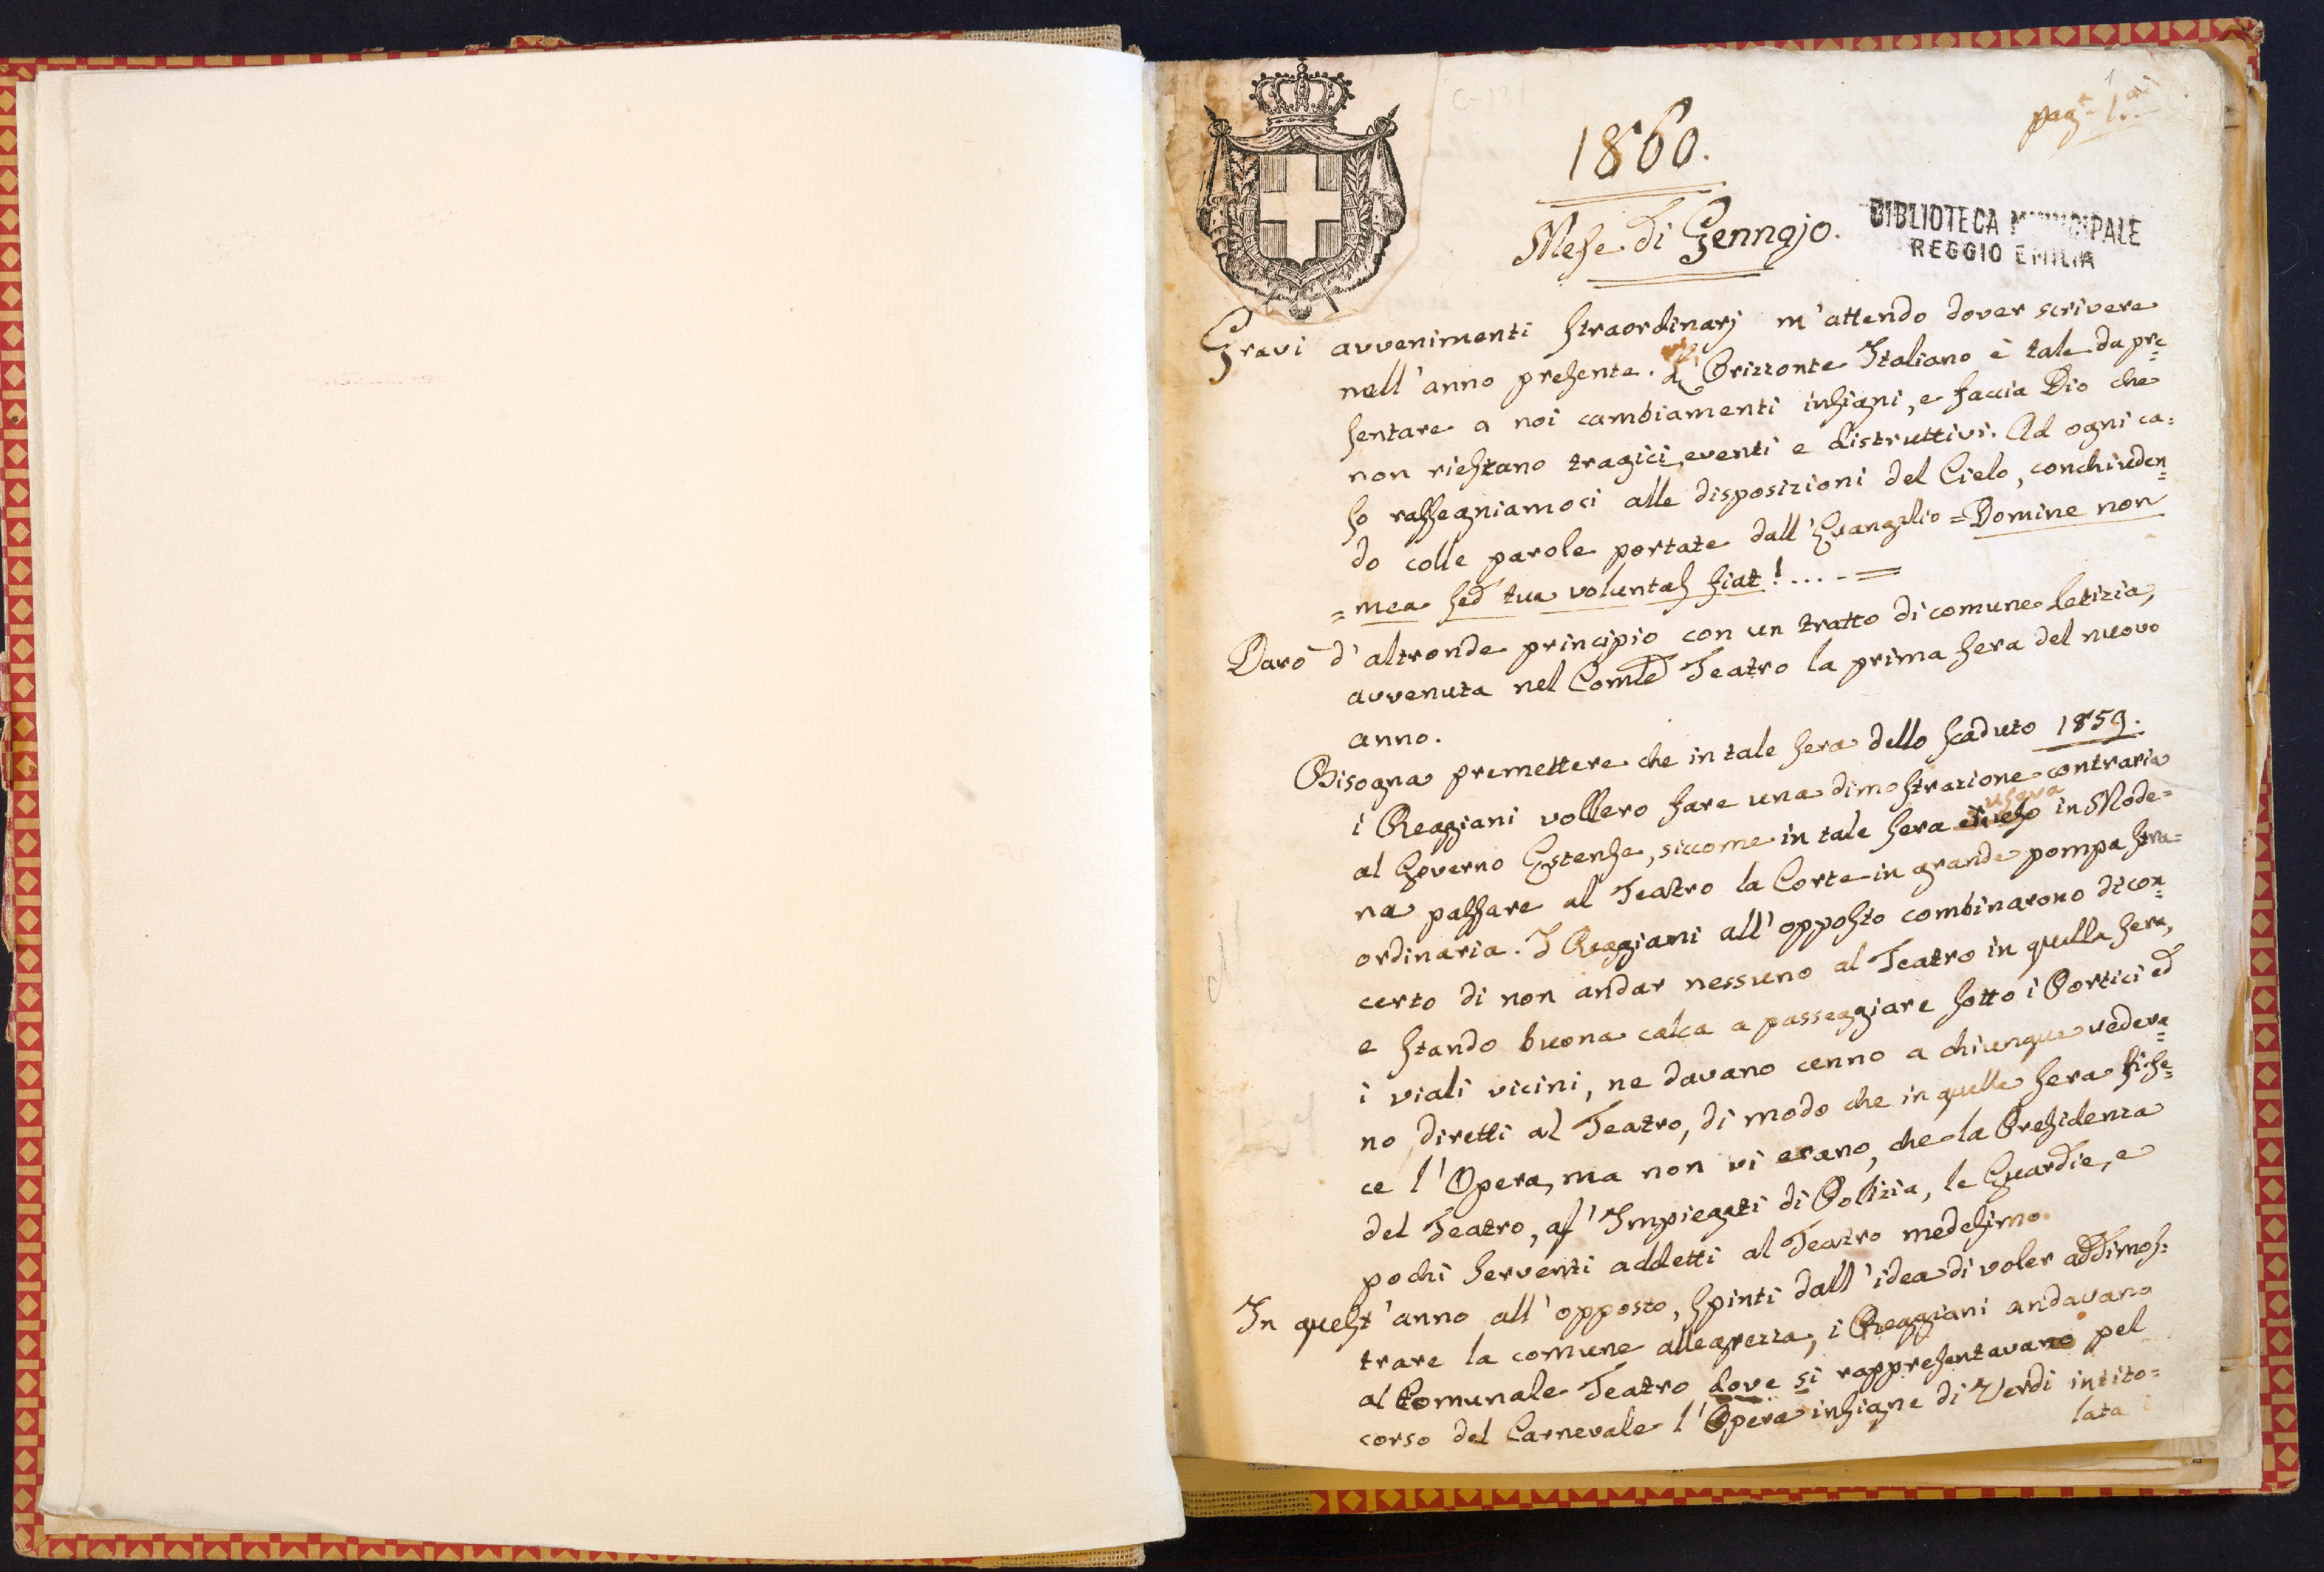 pag.ª 1.ª
1
C-131
1860.
Mese di Gennajo.
BIBLIOTECA MUNICIPALE
REGGIO EMILIA
Gravi avvenimenti straordinarj m'attendo dover scrivere
nell'anno presente. L'Orizzonte Italiano è tale da pre=
sentare a noi cambiamenti insigni, e faccia Dio che
non riestano tragici, eventi e distruttivi. Ad ogni ca=
so rassegniamoci alle disposizioni del Cielo, conchiuden=
do colle parole portate dall'Evangelio = Domine non
= mea sed tua voluntas fiat! ..... =
Darò d'altronde principio con un tratto di comune letizia,
avvenuta nel Comle Teatro la prima sera del nuovo
anno.
Bisogna premettere che in tale sera dello scaduto 1859.
i Reggiani vollero fare una dimostrazione contraria
al Governo Estense, siccome in tale sera usava in Mode=
na passare al Teatro la Corte in grande pompa stra=
ordinaria. I Reggiani all'opposto combinarono di con=
certo di non andar nessuno al Teatro in quella sera,
e stando buona calca a passeggiare sotto i Portici ed
i viali vicini, ne davano cenno a chiunque vedeva=
no diretti al Teatro, di modo che in quella sera si fe=
ce l'Opera, ma non vi erano, che la Presidenza
del Teatro, gl'Impiegati di Polizia, le Guardie, e
pochi serventi addetti al Teatro medesimo.
In quest'anno all'opposto, spinti dall'idea di voler addimos=
trare la comune allegrezza, i Reggiani andavano
al Comunale Teatro dove si rappresentavano pel
corso del Carnevale l'Opera insigne di Verdi intito=
lata